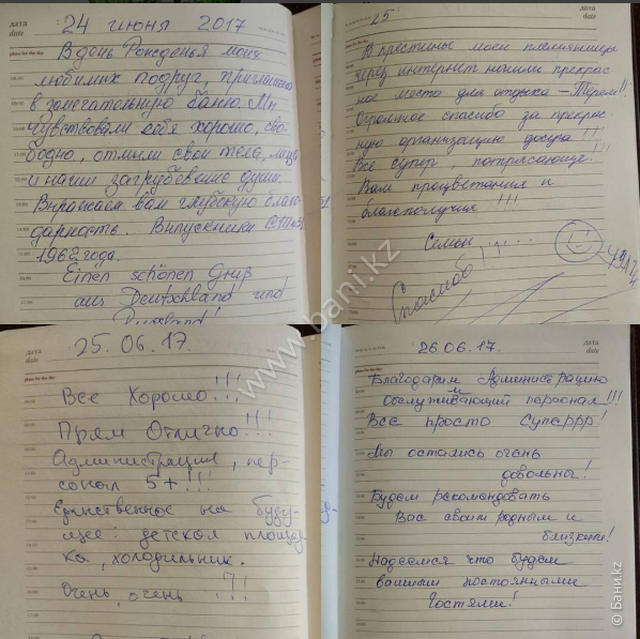 дата
date
24 июня 2017
plans for the day
В день Рожденья моих
любимых подруг, пригласила
в замечательную баню. Мы
чувствовали себя хорошо, сво-
бодно, отмыли свои тела, лица
и наши загрубевшие души.
Выражаем вам глубокую благо-
дарность. Выпускники СШ
1962 года.
Einen schönen Gruß
aus Deutschland und
Russland!
дата
date
25
plans for the day
В крестины моей племянницы
через интернет нашли прекрас-
ное место для отдыха - Терем!!
Огромное спасибо за прекрас-
ную организацию досуга!!!
Всё супер, потрясающе!!!
Вам процветания и
благополучия!!!
Семья
Спасибо
дата
date
25.06.17.
plans for the day
Все Хорошо!!!
Прям Отлично!!!
Администрация, пер-
сонал 5+!!!
Единственное на буду-
щее: детская площад-
ка, холодильник.
Очень, очень !!!
дата
date
26.06.17.
plans for the day
Благодарим Администрацию
и
обслуживающий персонал!!!
Все просто Суперрр!
Мы остались очень
довольны!
Будем рекомендовать
Вас своим родным и
близким!
Надеемся что будем
вашими постоянными
Гостями!
www.bani.kz
© Бани.kz